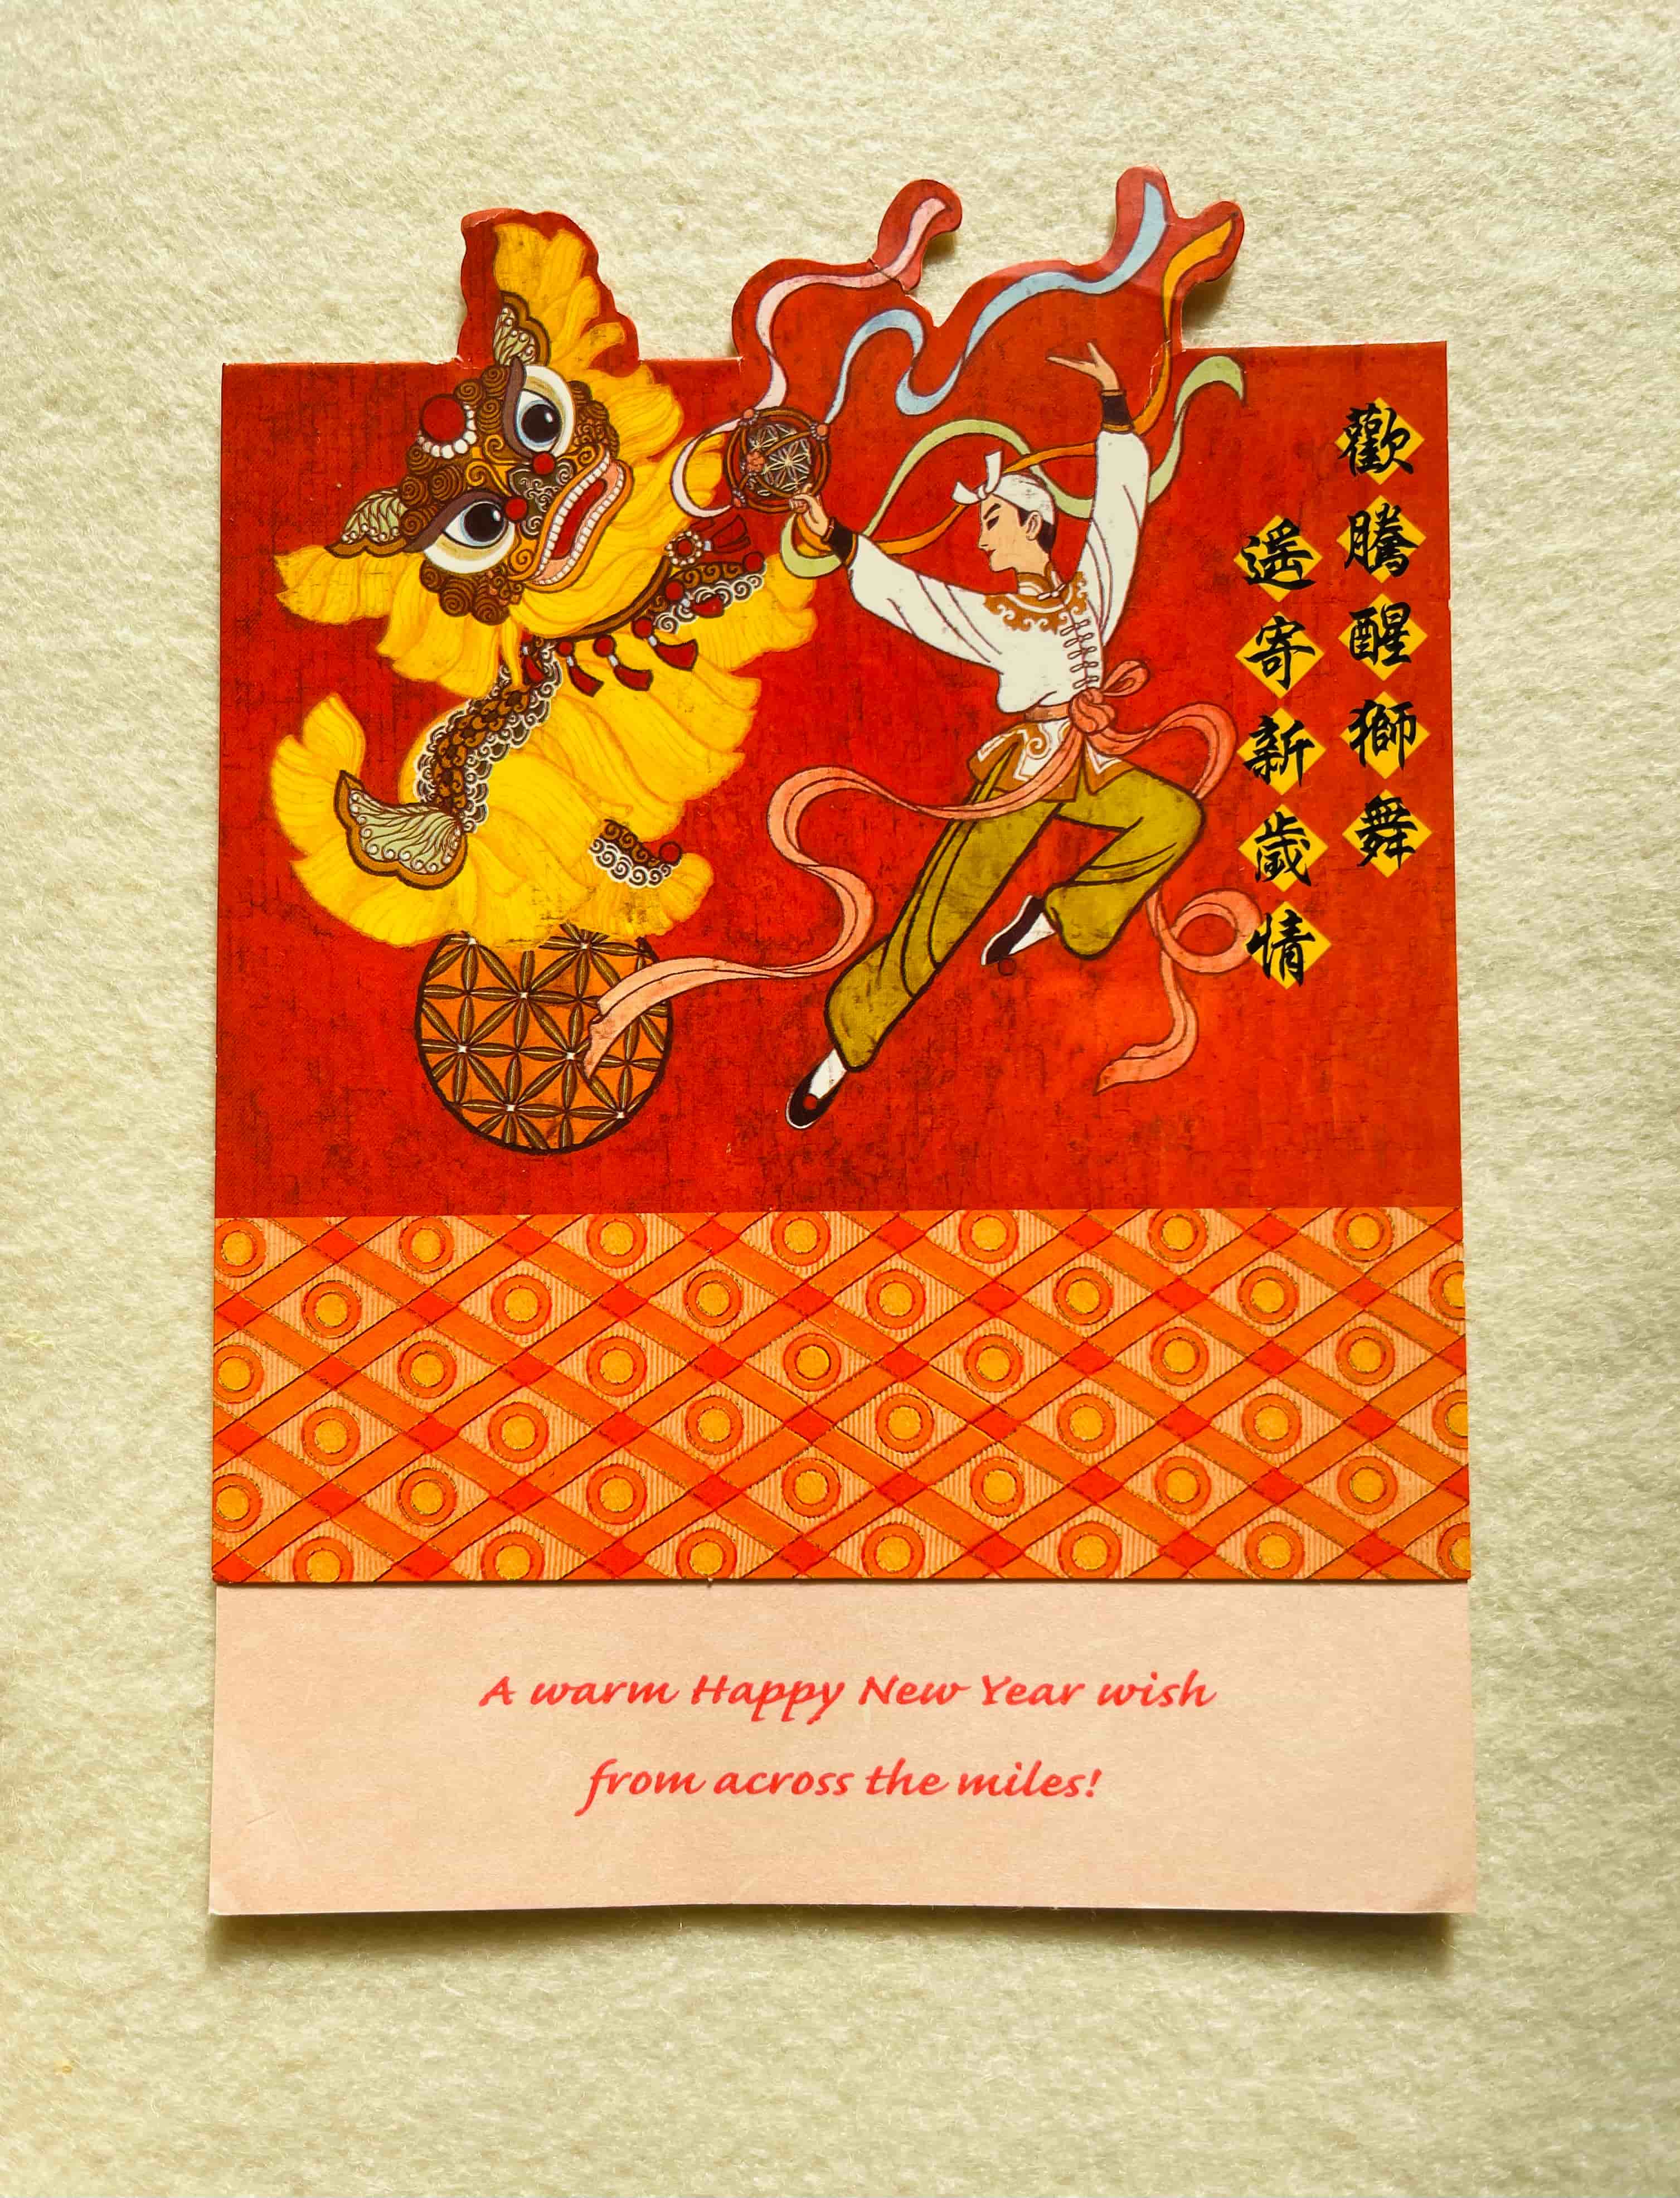 歡騰醒獅舞
遥寄新歲情
A warm Happy New Year wish
from across the miles!